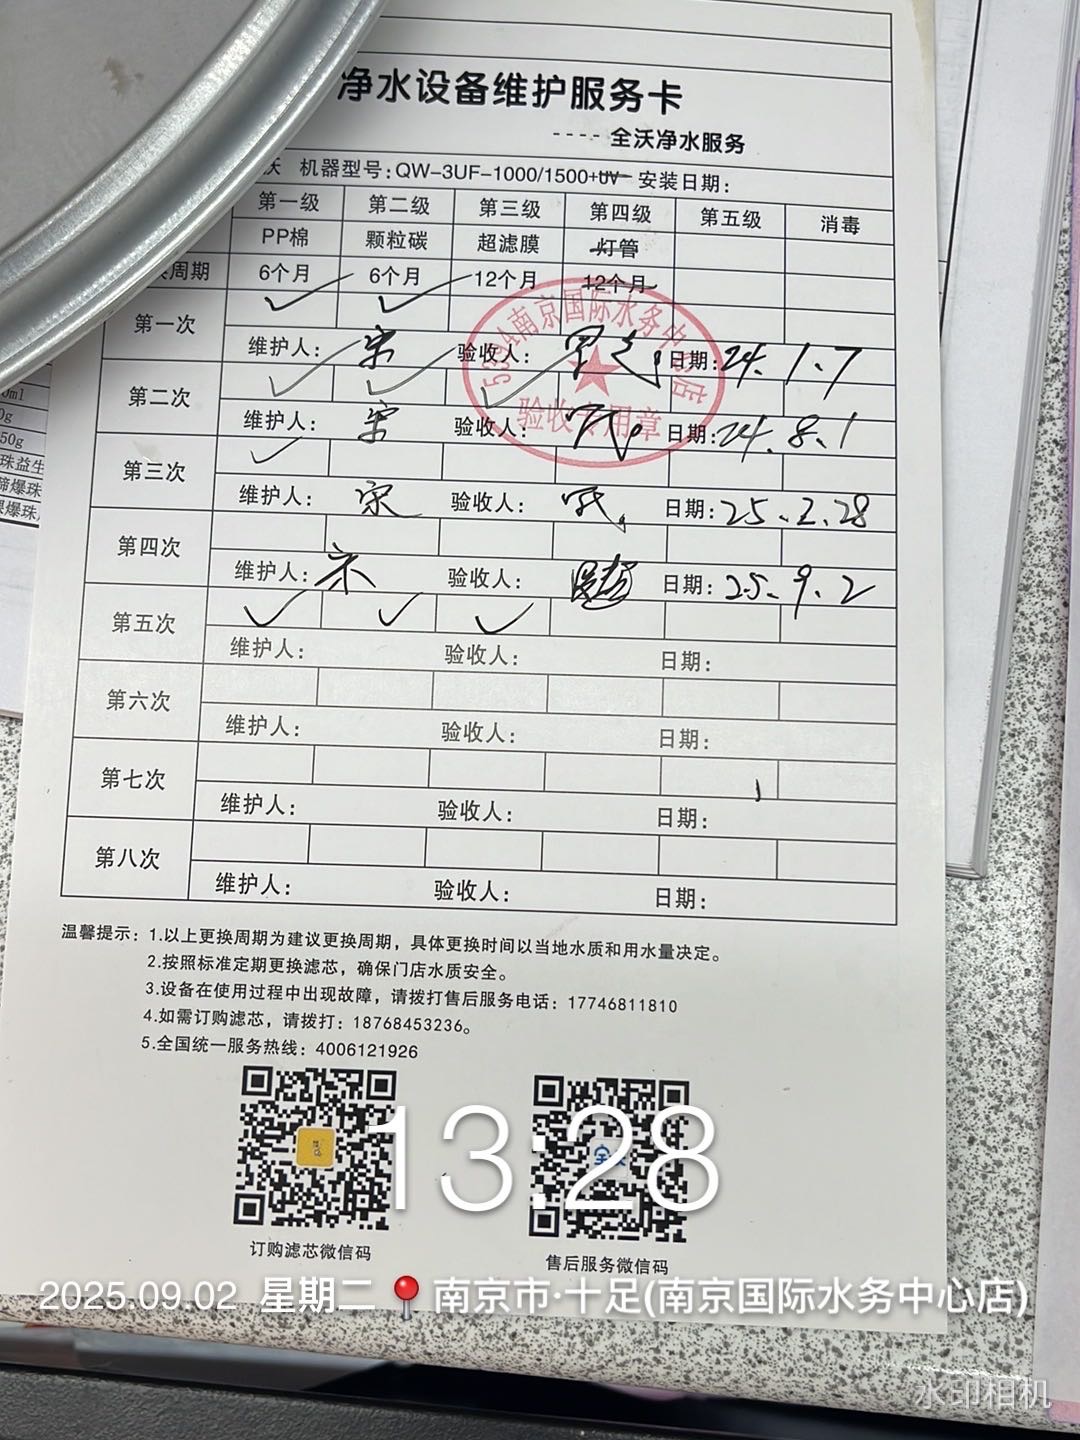 净水设备维护服务卡
----全沃净水服务
沃 机器型号:QW-3UF-1000/1500+UV 安装日期:
第一级 第二级 第三级 第四级 第五级 消毒
PP棉 颗粒碳 超滤膜 灯管
换周期 6个月 6个月 12个月 12个月
第一次
维护人: 宋 验收人: 日期:24.1.7
第二次
维护人: 宋 验收人: 日期:24.8.1
南京国际水务中心店
验收专用章
第三次
维护人: 宋 验收人: 日期:25.2.28
第四次
维护人: 宋 验收人: 日期:25.9.2
第五次
维护人: 验收人: 日期:
第六次
维护人: 验收人: 日期:
第七次
维护人: 验收人: 日期:
第八次
维护人: 验收人: 日期:
温馨提示: 1.以上更换周期为建议更换周期，具体更换时间以当地水质和用水量决定。
2.按照标准定期更换滤芯，确保门店水质安全。
3.设备在使用过程中出现故障，请拨打售后服务电话：17746811810
4.如需订购滤芯，请拨打：18768453236。
5.全国统一服务热线：4006121926
13:28
订购滤芯微信码 售后服务微信码
2025.09.02 星期二 南京市·十足(南京国际水务中心店)
水印相机
ml
0g
50g
珠益生
啼爆珠
爆珠